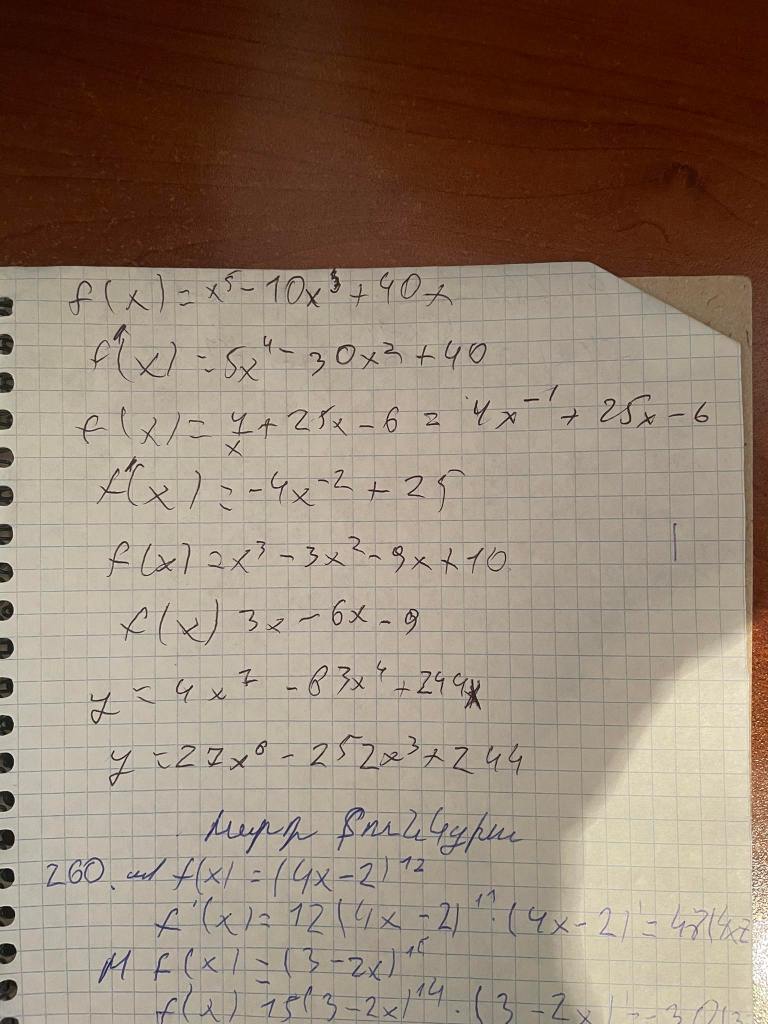 f(x) = x⁵ - 10x³ + 40x
f'(x) = 5x⁴ - 30x² + 40
f(x) = 4/x + 25x - 6 = 4x⁻¹ + 25x - 6
f'(x) = -4x⁻² + 25
f(x) = x³ - 3x² - 9x + 10
f(x) 3x - 6x - 9
y = 4x⁷ - 63x⁴ + 244
y = 27x⁶ - 252x³ + 244
260. f(x) = (4x-2)¹²
f'(x) = 12(4x-2)¹¹ · (4x-2)' = 48(4x
f(x) = (3-2x)¹⁵
f'(x) 15(3-2x)¹⁴ · (3-2x)' = -30(3